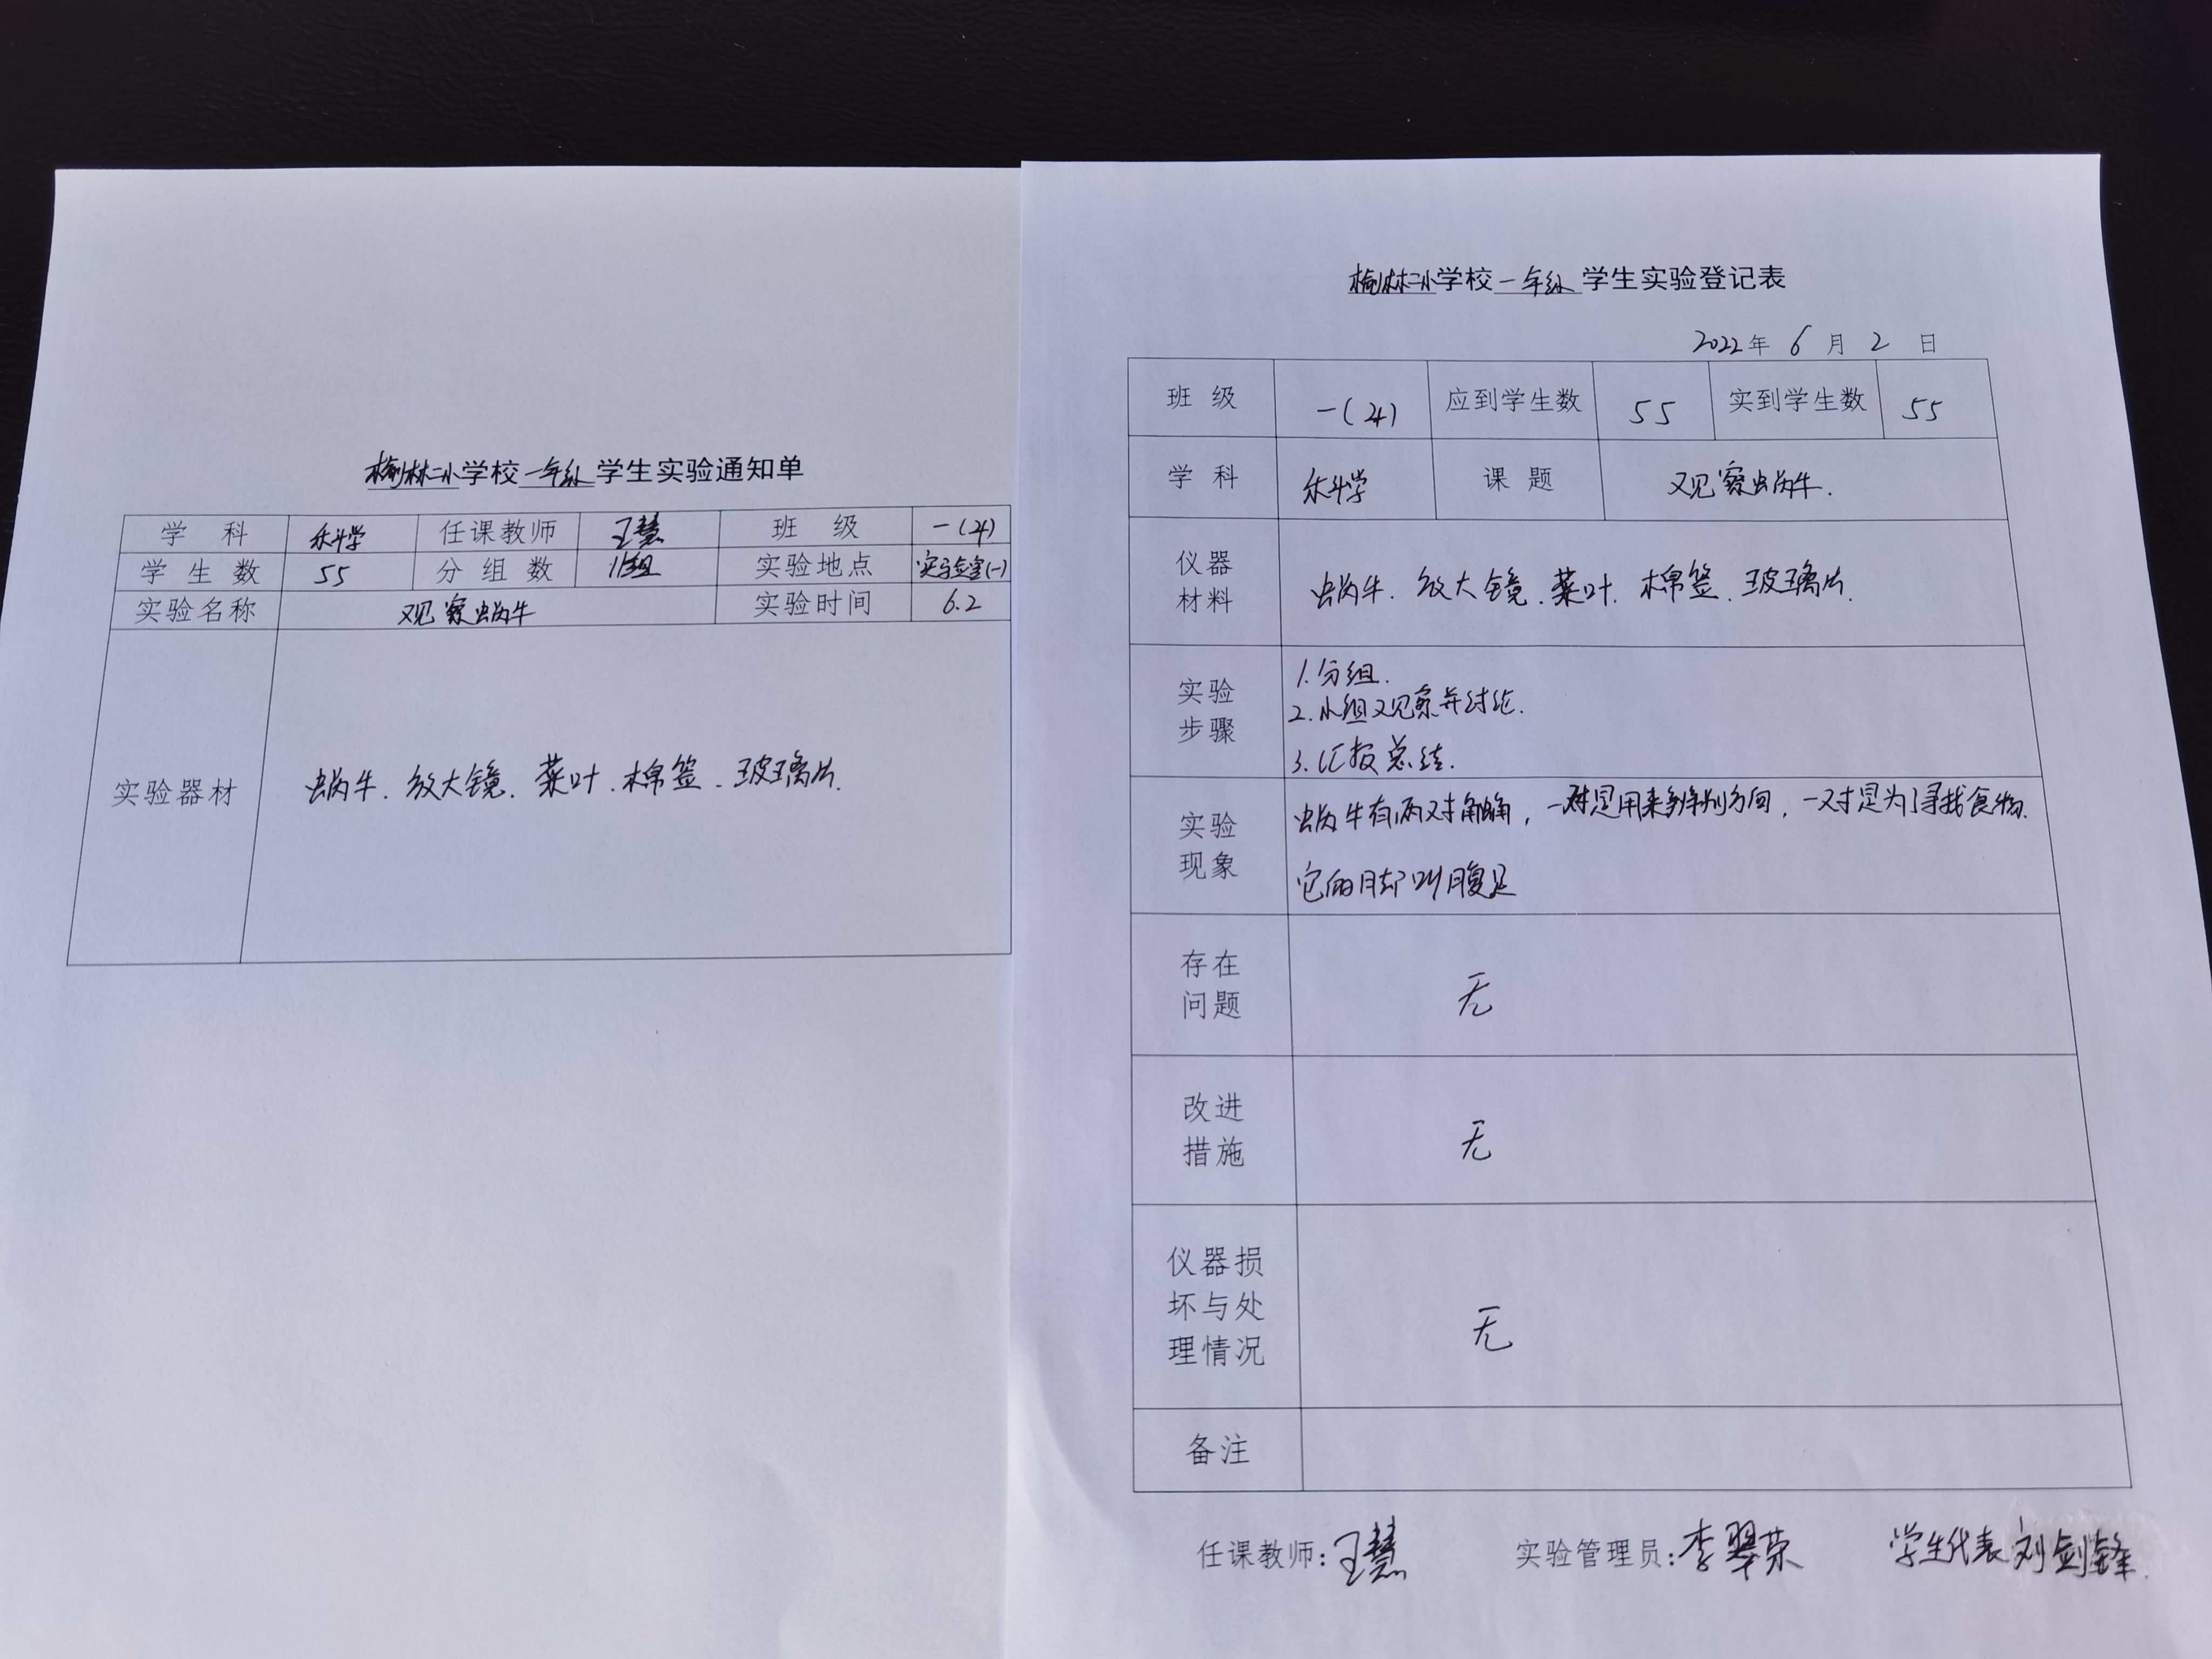 榆林二小学校一年级学生实验通知单
学科 科学 任课教师 王慧 班级 一(4)
学生数 55 分组数 11组 实验地点 实验室(一)
实验名称 观察蜗牛 实验时间 6.2
实验器材 蜗牛、放大镜、菜叶、棉签、玻璃片.
榆林二小学校一年级学生实验登记表
2022年 6 月 2 日
班级 一(4) 应到学生数 55 实到学生数 55
学科 科学 课题 观察蜗牛.
仪器
材料
蜗牛、放大镜、菜叶、棉签、玻璃片.
实验
步骤
1.分组.
2.小组观察并讨论.
3.汇报总结.
实验
现象
蜗牛有两对触角，一对是用来辨别方向，一对是为了寻找食物.
它的脚叫腹足
存在
问题
无
改进
措施
无
仪器损
坏与处
理情况
无
备注
任课教师：王慧 实验管理员：李翠荣 学生代表 刘剑锋.